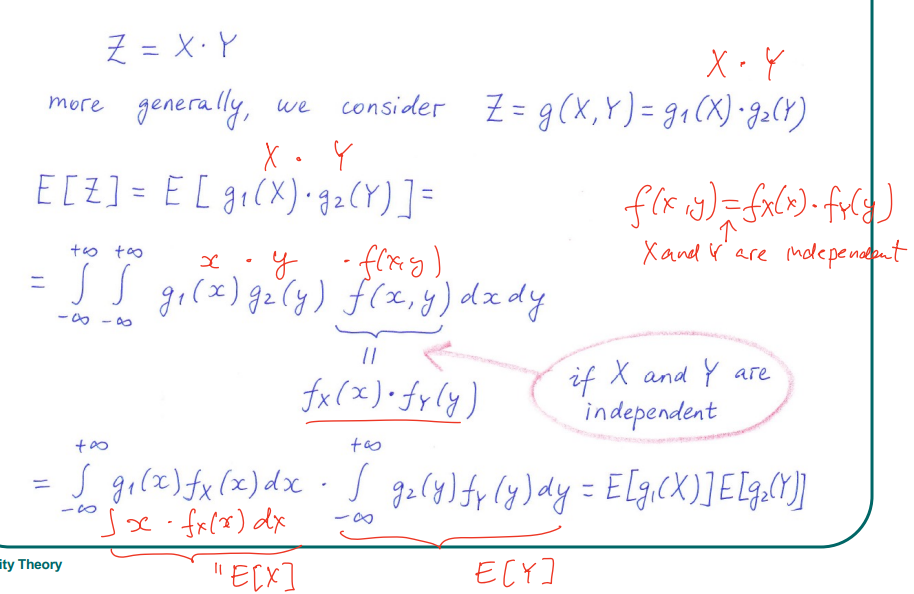 Z = X · Y
X · Y
more generally, we consider Z = g(X, Y) = g₁(X) · g₂(Y)
X · Y
E[Z] = E[g₁(X) · g₂(Y)] =
f(x,y) = fX(x) · fY(y)
↑
X and Y are independent
x · y · f(x,y)
= ∫_{-∞}^{+∞} ∫_{-∞}^{+∞} g₁(x) g₂(y) f(x, y) dx dy
||
if X and Y are
independent
fX(x) · fY(y)
= ∫_{-∞}^{+∞} g₁(x) fX(x) dx · ∫_{-∞}^{+∞} g₂(y) fY(y) dy = E[g₁(X)] E[g₂(Y)]
∫ x · fX(x) dx
ity Theory
" E[X] E[Y]